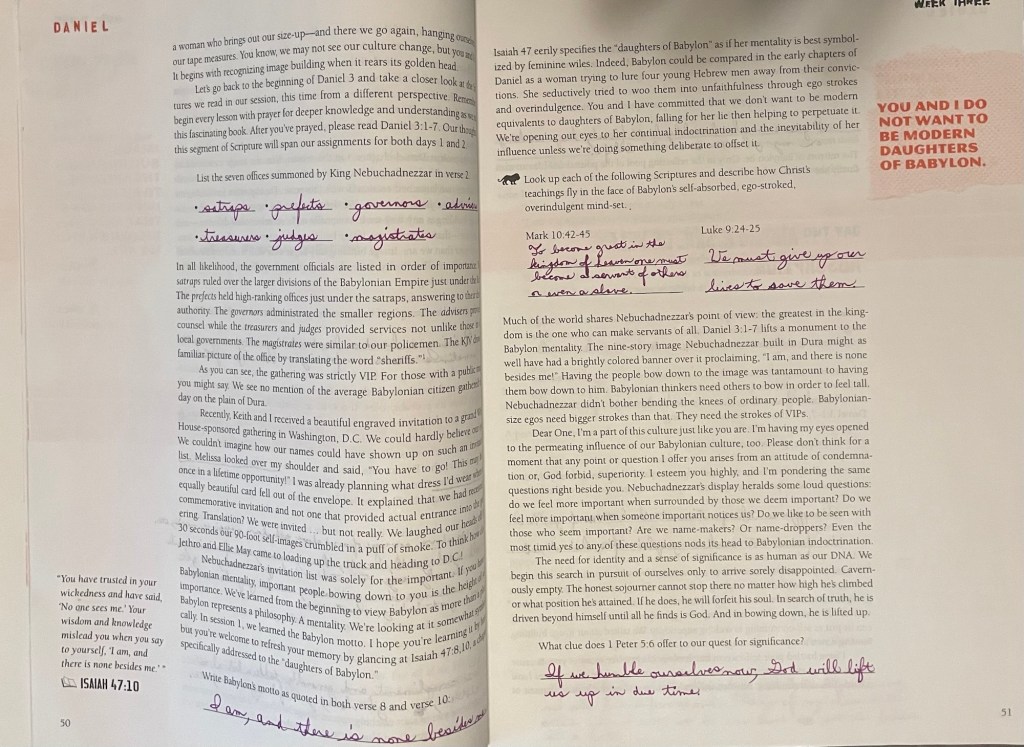 DANIEL
a woman who brings out our size-up—and there we go again, hanging
our tape measures. You know, we may not see our culture change, but you
It begins with recognizing image building when it rears its golden head.
Let's go back to the beginning of Daniel 3 and take a closer look at
tures we read in our session, this time from a different perspective.
begin every lesson with prayer for deeper knowledge and understanding as
this fascinating book. After you've prayed, please read Daniel 3:1-7. Our
this segment of Scripture will span our assignments for both days 1 and 2.
List the seven offices summoned by King Nebuchadnezzar in verse 2.
• satraps • prefects • governors •
• treasurers • judges • magistrates
In all likelihood, the government officials are listed in order of
satraps ruled over the larger divisions of the Babylonian Empire just under
The prefects held high-ranking offices just under the satraps, answering to
authority. The governors administrated the smaller regions. The advisers
counsel while the treasurers and judges provided services not unlike those
local governments. The magistrates were similar to our policemen. The KJV
familiar picture of the office by translating the word "sheriffs."1
As you can see, the gathering was strictly VIP. For those with a public
you might say. We see no mention of the average Babylonian citizen
day on the plain of Dura.
Recently, Keith and I received a beautiful engraved invitation to a
House-sponsored gathering in Washington, D.C. We could hardly believe
We couldn't imagine how our names could have shown up on such an
list. Melissa looked over my shoulder and said, "You have to go! This
once in a lifetime opportunity!" I was already planning what dress I'd wear
equally beautiful card fell out of the envelope. It explained that we had
commemorative invitation and not one that provided actual entrance into
ering. Translation? We were invited ... but not really. We laughed our
30 seconds our 90-foot self-images crumbled in a puff of smoke. To think
Jethro and Ellie May came to loading up the truck and heading to D.C.!
Nebuchadnezzar's invitation list was solely for the important. If you
Babylonian mentality, important people bowing down to you is the
importance. We've learned from the beginning to view Babylon as more than
Babylon represents a philosophy. A mentality. We're looking at it somewhat
cally. In session 1, we learned the Babylon motto. I hope you're learning it by
but you're welcome to refresh your memory by glancing at Isaiah 47:8,10,
specifically addressed to the "daughters of Babylon."
Write Babylon's motto as quoted in both verse 8 and verse 10:
I am, and there is none besides me
"You have trusted in your
wickedness and have said,
'No one sees me.' Your
wisdom and knowledge
mislead you when you say
to yourself, 'I am, and
there is none besides me.' "
ISAIAH 47:10
50
WEEK THREE
Isaiah 47 eerily specifies the "daughters of Babylon" as if her mentality is best symbol-
ized by feminine wiles. Indeed, Babylon could be compared in the early chapters of
Daniel as a woman trying to lure four young Hebrew men away from their convic-
tions. She seductively tried to woo them into unfaithfulness through ego strokes
and overindulgence. You and I have committed that we don't want to be modern
equivalents to daughters of Babylon, falling for her lie then helping to perpetuate it.
We're opening our eyes to her continual indoctrination and the inevitability of her
influence unless we're doing something deliberate to offset it.
YOU AND I DO
NOT WANT TO
BE MODERN
DAUGHTERS
OF BABYLON.
Look up each of the following Scriptures and describe how Christ's
teachings fly in the face of Babylon's self-absorbed, ego-stroked,
overindulgent mind-set.
Mark 10:42-45
To become great in the
kingdom of heaven one must
become a servant of others
or even a slave.
Luke 9:24-25
We must give up our
lives to save them.
Much of the world shares Nebuchadnezzar's point of view: the greatest in the king-
dom is the one who can make servants of all. Daniel 3:1-7 lifts a monument to the
Babylon mentality. The nine-story image Nebuchadnezzar built in Dura might as
well have had a brightly colored banner over it proclaiming, "I am, and there is none
besides me!" Having the people bow down to the image was tantamount to having
them bow down to him. Babylonian thinkers need others to bow in order to feel tall.
Nebuchadnezzar didn't bother bending the knees of ordinary people. Babylonian-
size egos need bigger strokes than that. They need the strokes of VIPs.
Dear One, I'm a part of this culture just like you are. I'm having my eyes opened
to the permeating influence of our Babylonian culture, too. Please don't think for a
moment that any point or question I offer you arises from an attitude of condemna-
tion or, God forbid, superiority. I esteem you highly, and I'm pondering the same
questions right beside you. Nebuchadnezzar's display heralds some loud questions:
do we feel more important when surrounded by those we deem important? Do we
feel more important when someone important notices us? Do we like to be seen with
those who seem important? Are we name-makers? Or name-droppers? Even the
most timid yes to any of these questions nods its head to Babylonian indoctrination.
The need for identity and a sense of significance is as human as our DNA. We
begin this search in pursuit of ourselves only to arrive sorely disappointed. Cavern-
ously empty. The honest sojourner cannot stop there no matter how high he's climbed
or what position he's attained. If he does, he will forfeit his soul. In search of truth, he is
driven beyond himself until all he finds is God. And in bowing down, he is lifted up.
What clue does 1 Peter 5:6 offer to our quest for significance?
If we humble ourselves now, God will lift
us up in due time.
51